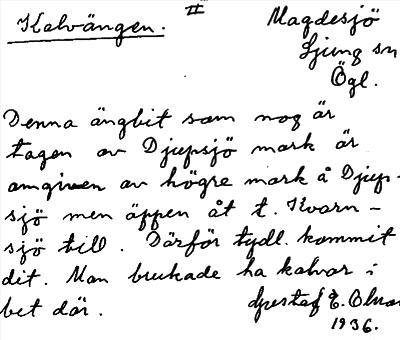 Kalvängen. #
Magdesjö
Ljung sn
Ögl.
Denna ängbit som nog är
tagen av Djupsjö mark är
omgiven av högre mark å Djup-
sjö men öppen åt t. Kvarn-
sjö till. Därför tydl. kommit
dit. Man brukade ha kalvar i
bet där.
Gustaf E.
1936.